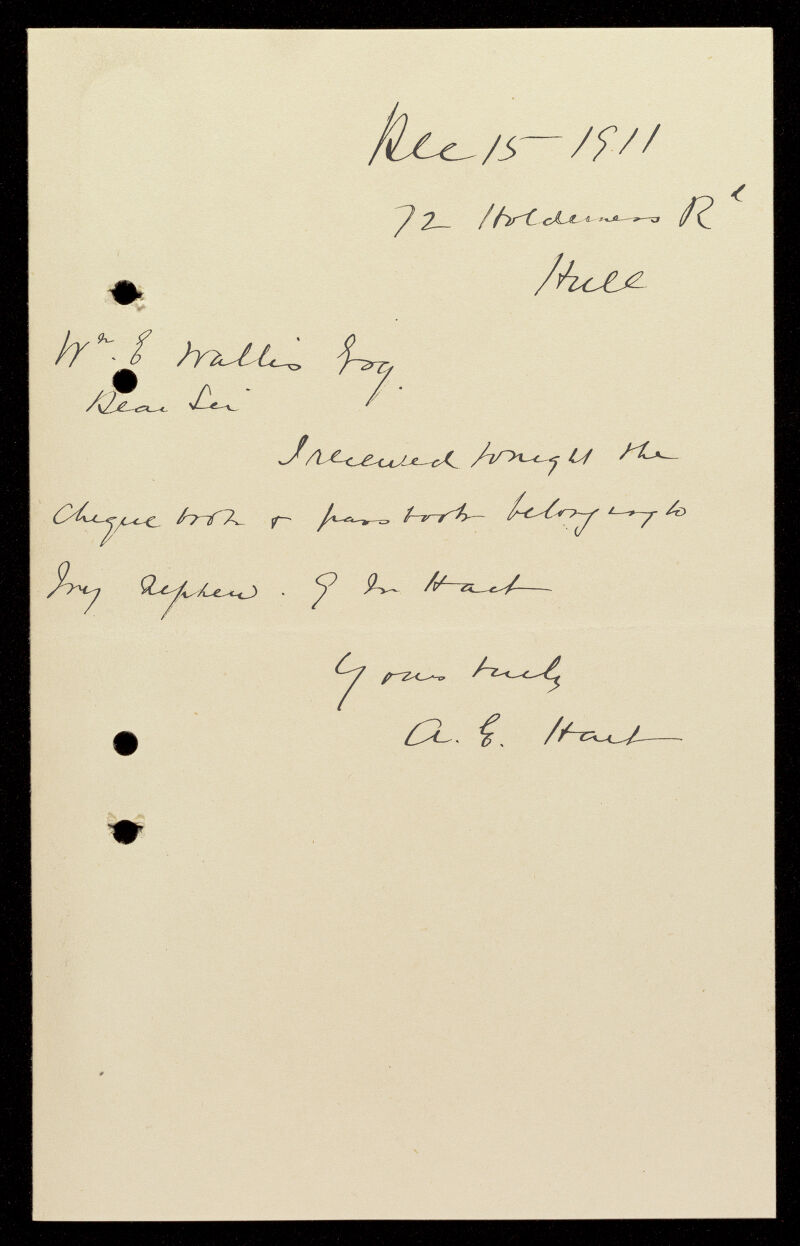 Dec 15 - 1911
72 Holderness Rd
Hull
Wm. E Wallis Esq.
Dear Sir
I received tonight the
cheque book & pass book belonging to
my nephew. G M Hart
Yours truly
A. E. Hart